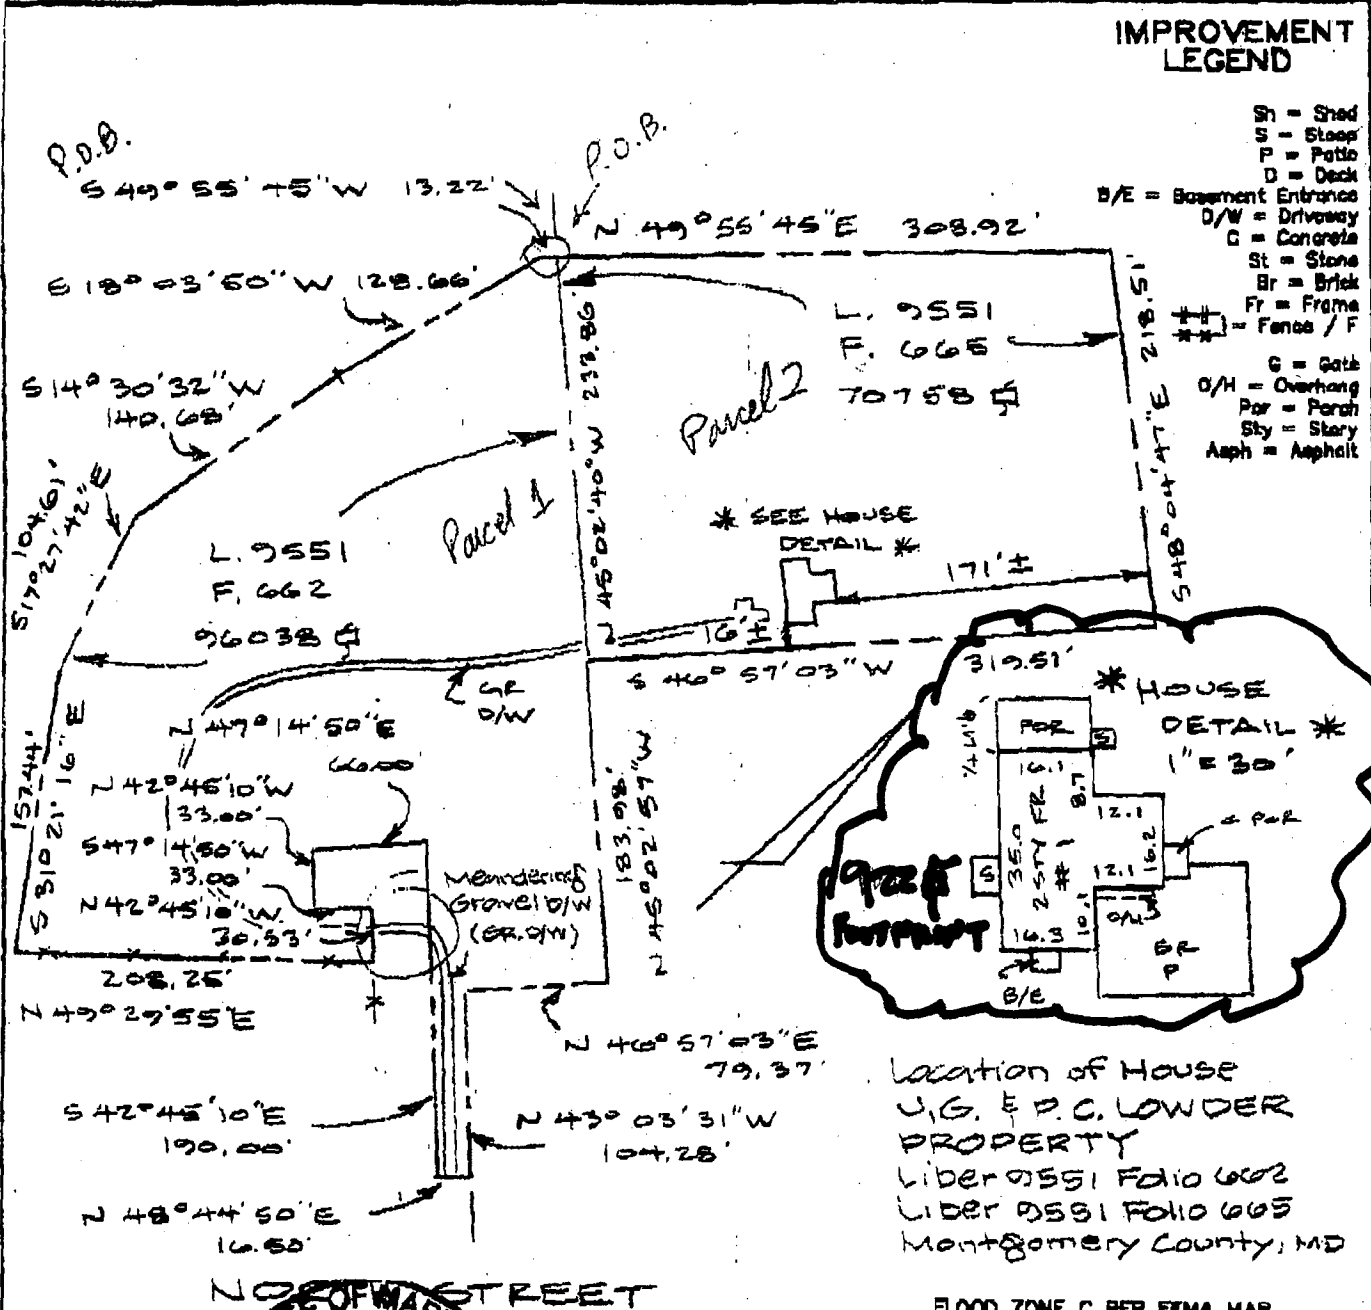 IMPROVEMENT
LEGEND
Sh = Shed
S = Stoop
P = Patio
D = Deck
B/E = Basement Entrance
D/W = Driveway
C = Concrete
St = Stone
Br = Brick
Fr = Frame
= Fence / F
G = Gate
O/H = Overhang
Por = Porch
Sty = Story
Asph = Asphalt
P.O.B.
P.O.B.
S 49° 55' 45" W 13.22'
N 49° 55' 45" E 308.92'
S 18° 03' 50" W 128.66'
S 14° 30' 32" W
140.68'
104.61'
S 17° 27' 42" E
L. 9551
F. 665
70758
Parcel 2
218.51'
S 48° 04' 47" E
N 45° 02' 40" W 233.86'
Parcel 1
L. 9551
F. 662
96038
* SEE HOUSE
DETAIL *
171' ±
16' ±
GR
D/W
S 46° 57' 03" W
319.51'
157.44'
S 31° 21' 16" E
N 47° 14' 50" E
66.00
N 42° 45' 10" W
33.00'
S 47° 14' 50" W
33.00'
N 42° 45' 10" W
30.53'
208.25'
N 49° 29' 55" E
Meandering
Gravel D/W
(GR. D/W)
183.98'
N 45° 02' 57" W
N 46° 57' 03" E
79.37'
S 42° 45' 10" E
190.00'
N 43° 03' 31" W
104.28'
N 48° 44' 50" E
16.50'
* HOUSE
DETAIL *
1" = 30'
POR
S
16.1
8.7
12.1
POR
35.0
2 STY FR
# 1
16.2
S
12.1
10.1
O/H
16.3
BR
P
B/E
922
FOOTPRINT
Location of House
J.G. & P.C. LOWDER
PROPERTY
Liber 9551 Folio 662
Liber 9551 Folio 665
Montgomery County, MD
STREET
FLOOD ZONE C PER FEMA MAP